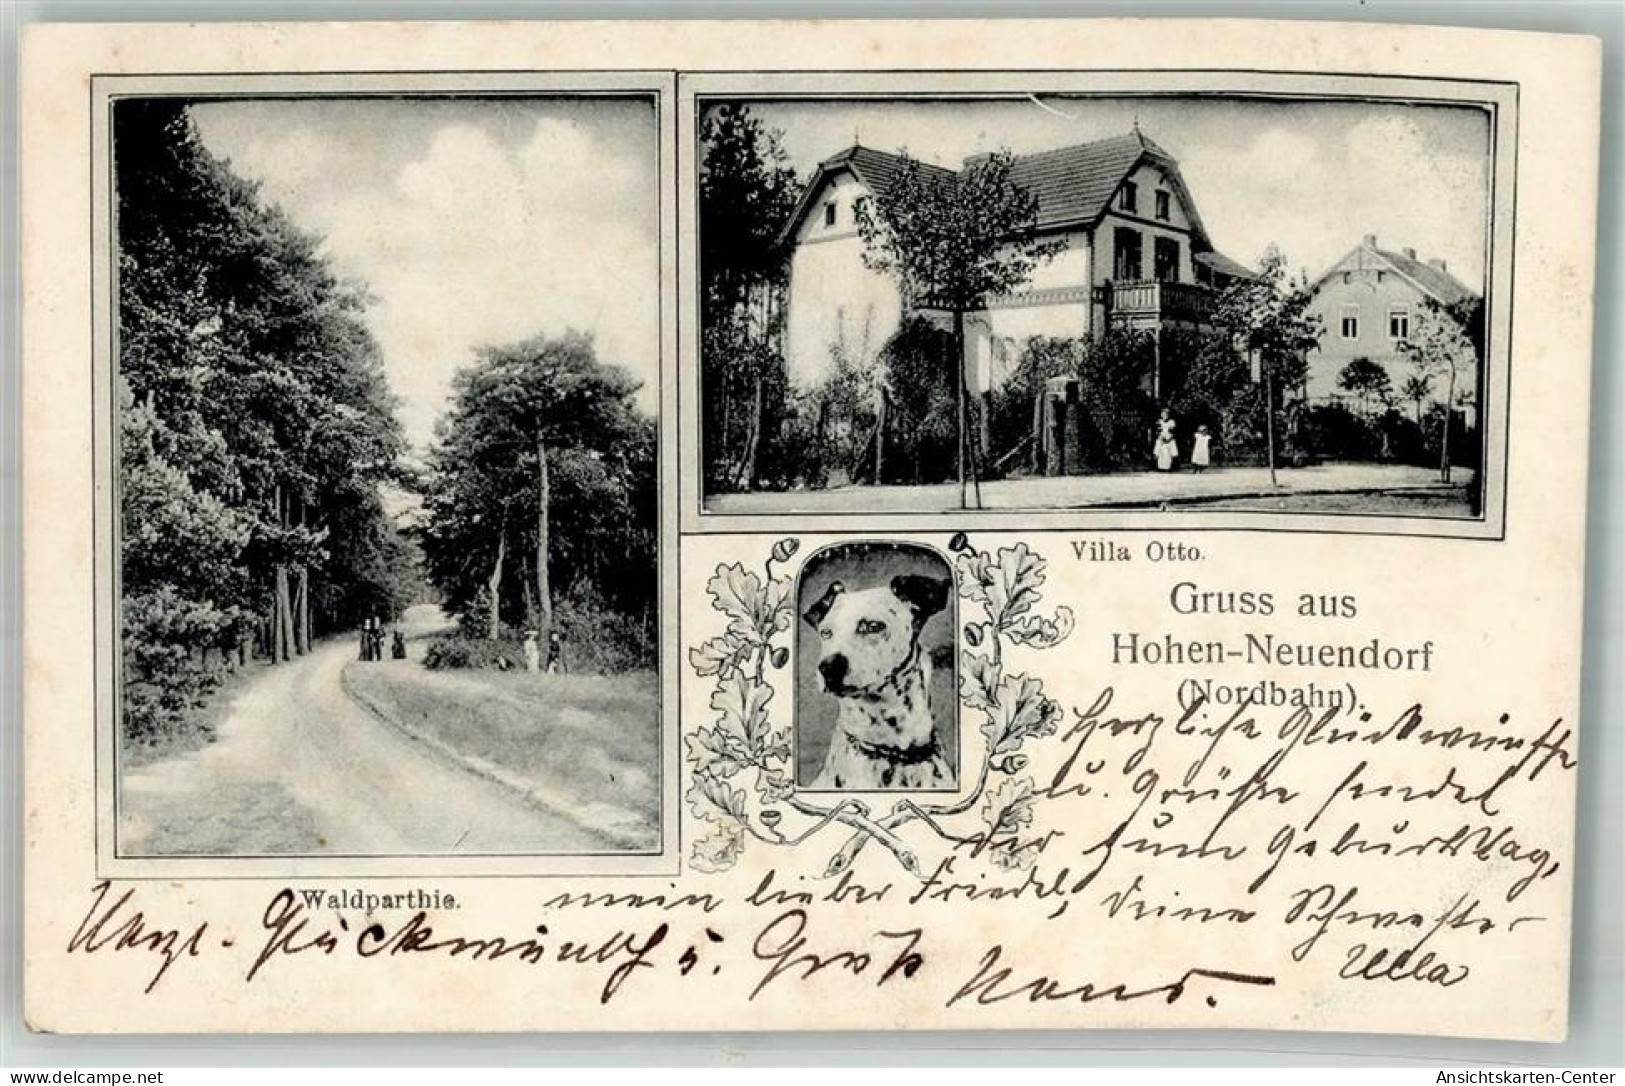 Villa Otto.
Gruss aus
Hohen-Neuendorf
(Nordbahn).
Herzliche Glückwünsche
u. Grüße sendet
dir zum Geburtstag,
mein lieber Friedel, deine Schwester
Ella
Waldparthie.
Herzl. Glückwunsch u. Gruß
Hans.
www.delcampe.net
Ansichtskarten-Center